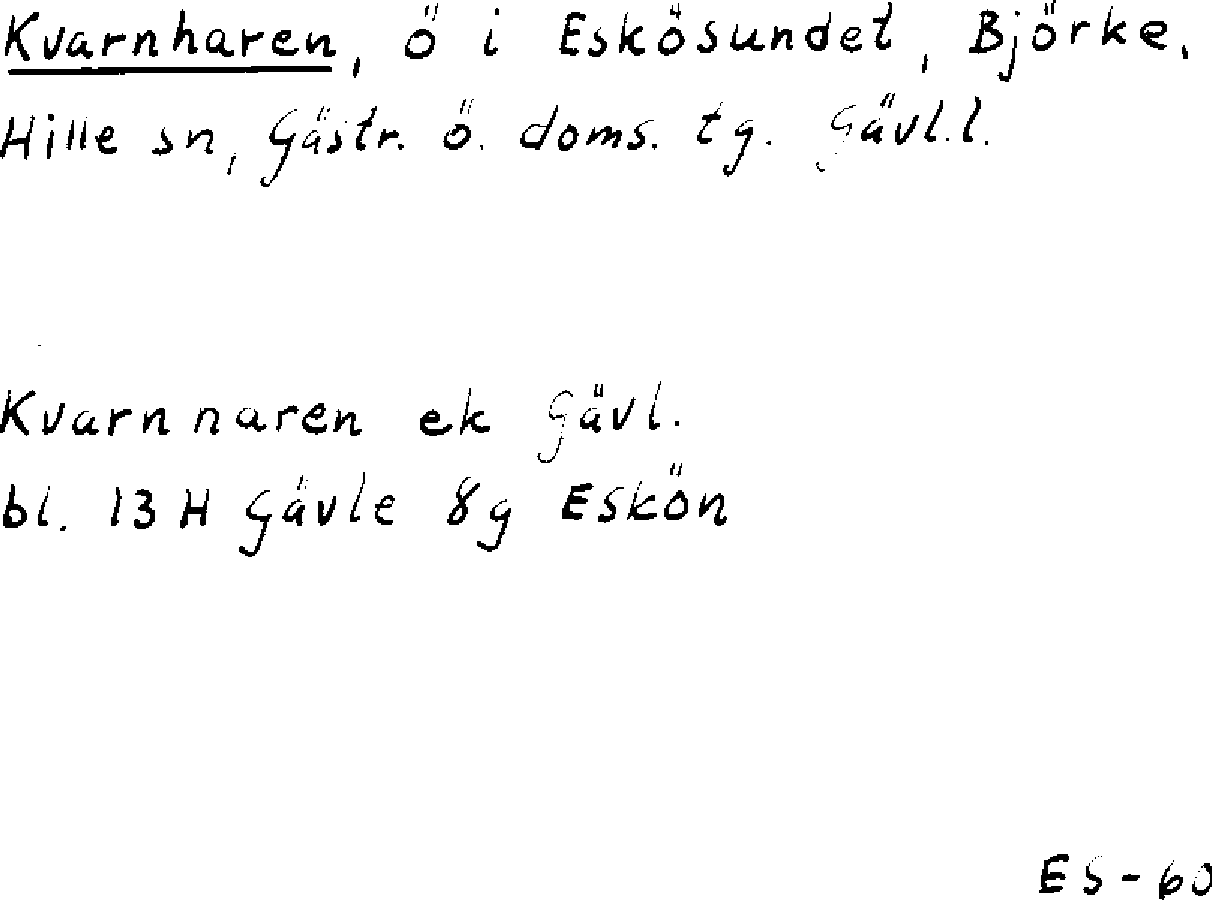 Kvarnharen, ö i Eskösundet, Björke,
Hille sn, Gästr. ö. doms. tg. Gävl.l.
Kvarnnaren ek Gävl.
bl. 13 H Gävle 8g Eskön
ES-60